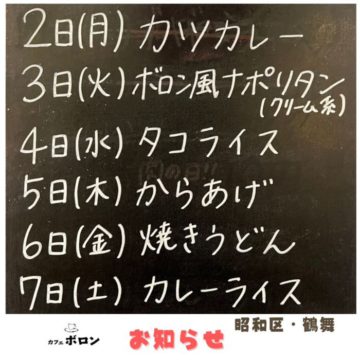 2日(月) カツカレー
3日(火) ボロン風ナポリタン
(クリーム系)
4日(水) タコライス
5日(木) からあげ
6日(金) 焼きうどん
7日(土) カレーライス
カフェ ボロン
お知らせ
昭和区・鶴舞